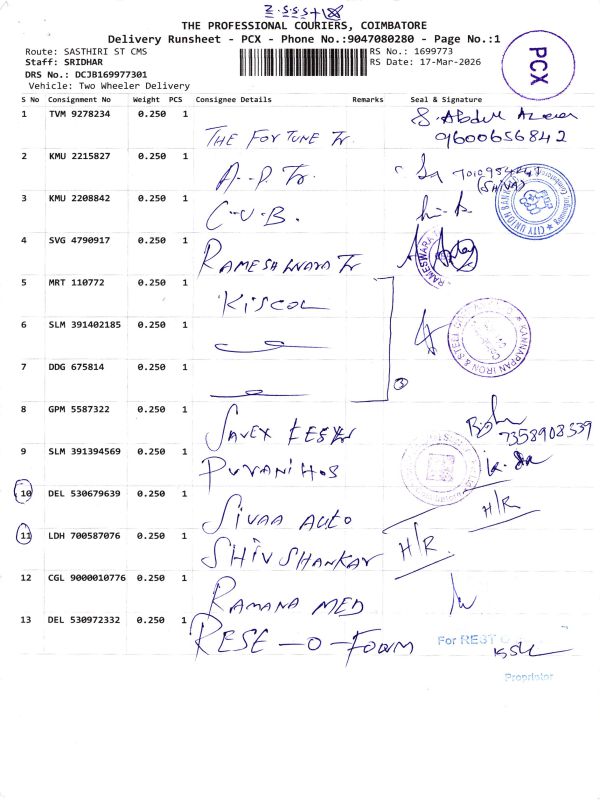 THE PROFESSIONAL COURIERS, COIMBATORE
Delivery Runsheet - PCX - Phone No.:9047080280 - Page No.:1
Route: SASTHIRI ST CMS
RS No.: 1699773
Staff: SRIDHAR
RS Date: 17-Mar-2026
DRS No.: DCJB169977301
Vehicle: Two Wheeler Delivery
PCX
S No Consignment No Weight PCS Consignee Details Remarks Seal & Signature
1 TVM 9278234 0.250 1 THE FORTUNE Tr. S. Abdul
9600656842
2 KMU 2215827 0.250 1 A.P. Tr.
(SHIVA)
3 KMU 2208842 0.250 1 C.U.B.
CITY UNION BANK
4 SVG 4790917 0.250 1 RAMESHWARA Tr
RAMESWARA
5 MRT 110772 0.250 1 KISCOL
6 SLM 391402185 0.250 1
KANNAPPAN IRON & STEEL
7 DDG 675814 0.250 1
3
8 GPM 5587322 0.250 1 SAVEX
7358908539
9 SLM 391394569 0.250 1 PUVANI HOS
10 DEL 530679639 0.250 1 SIVAA AUTO H/R
11 LDH 700587076 0.250 1 SHIV SHANKAR H/R
12 CGL 9000010776 0.250 1 RAMANA MED
13 DEL 530972332 0.250 1 RESE-O-FOAM
For REST
Proprietor